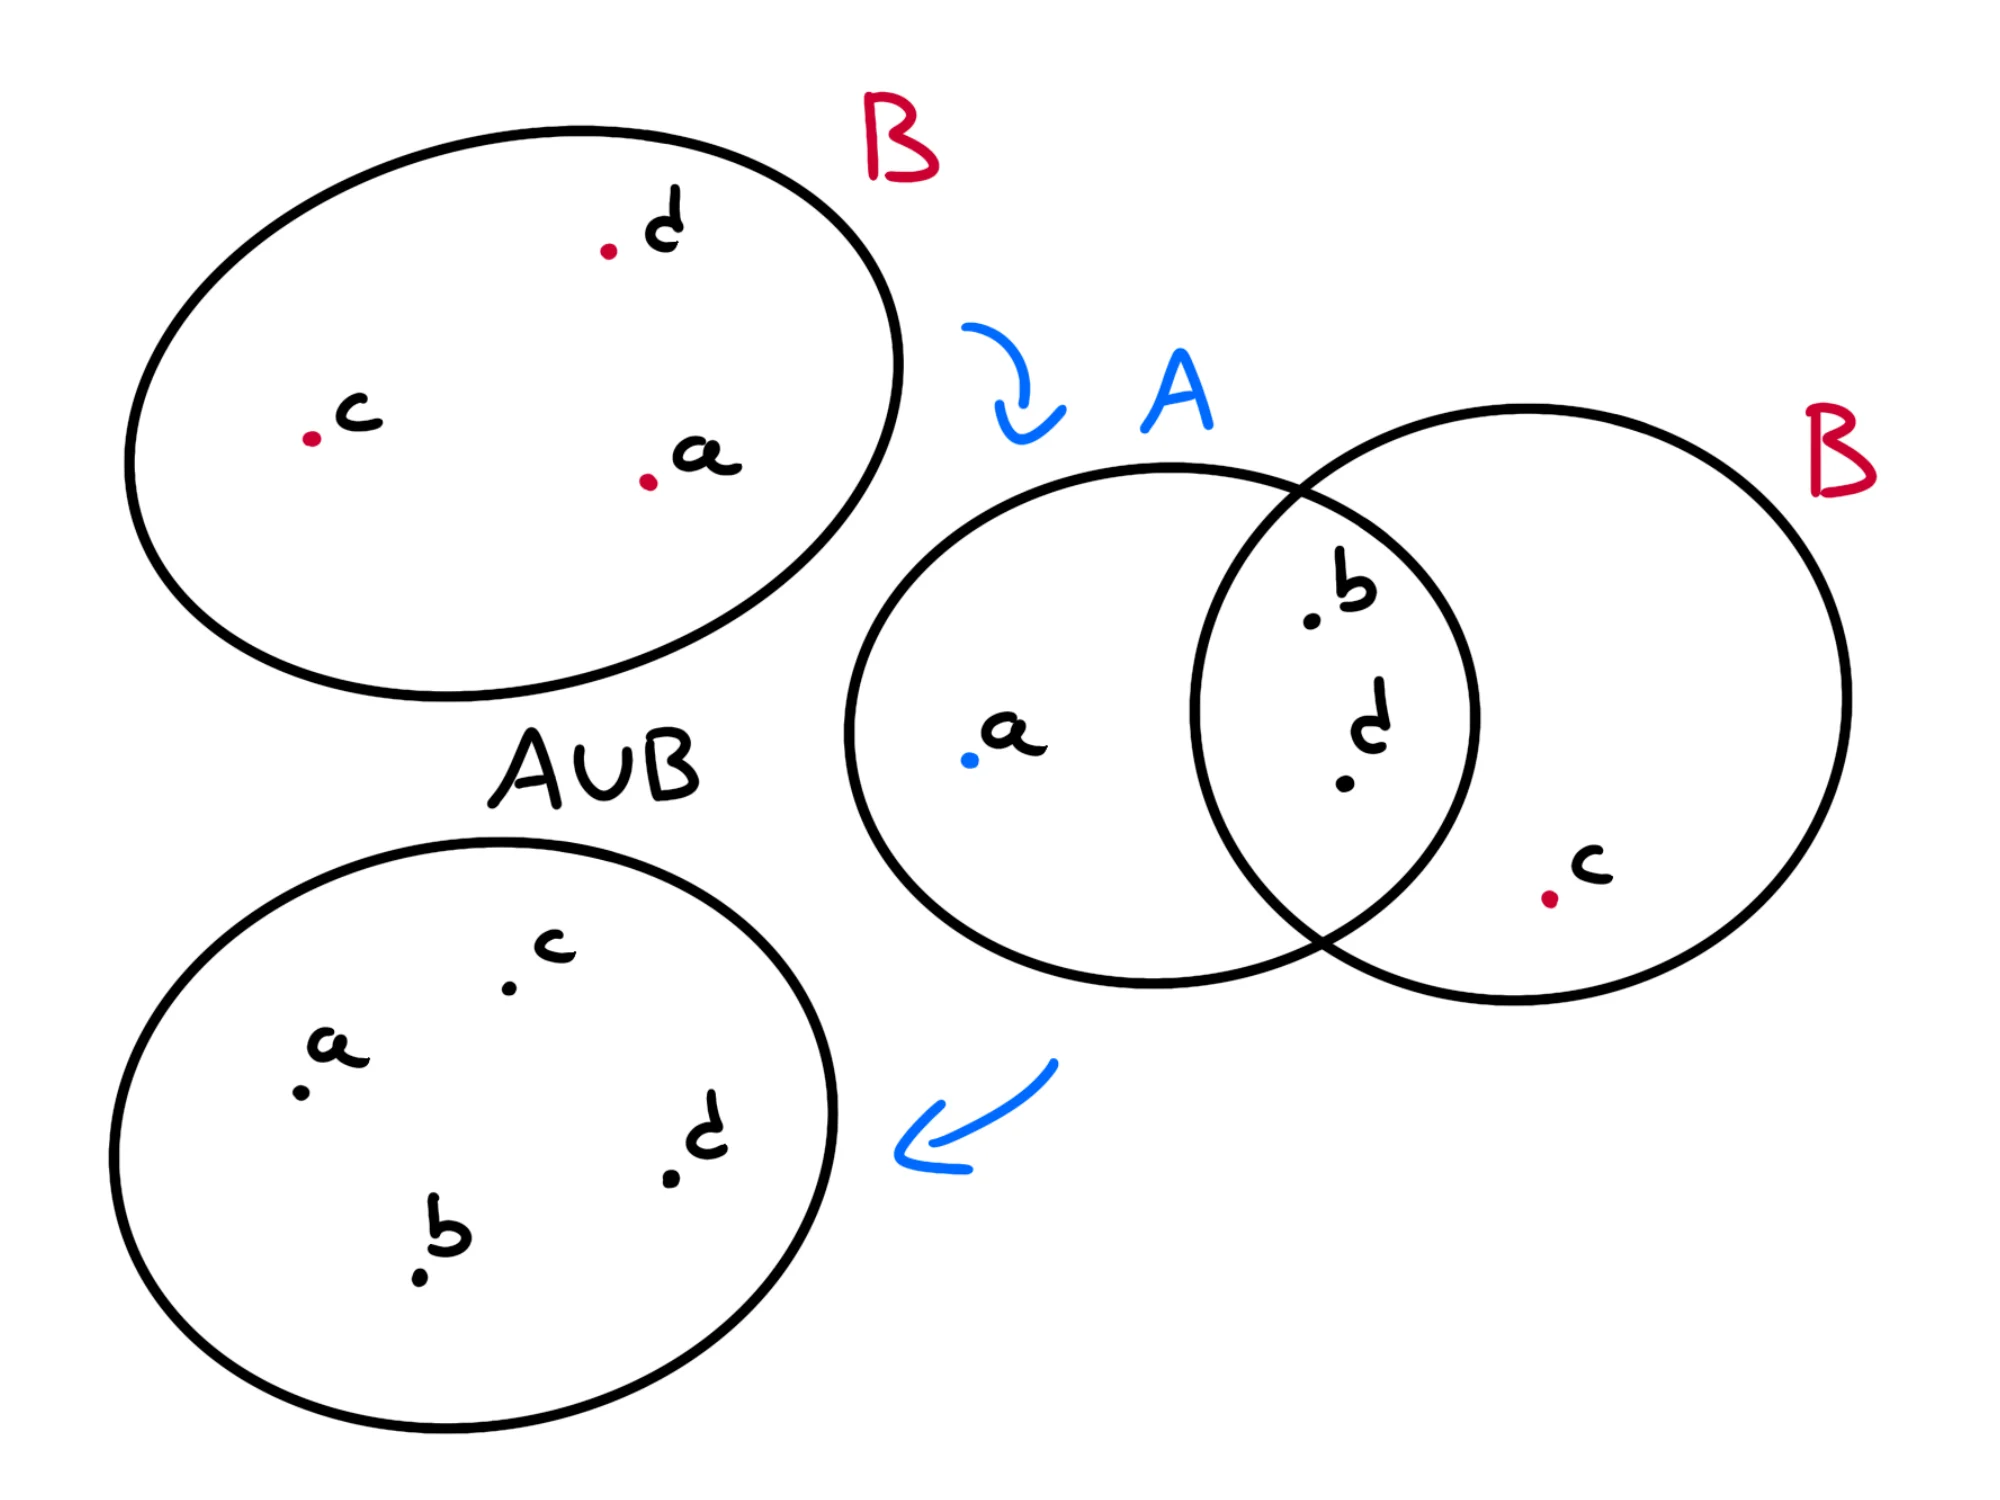 B
d
c
a
A
B
b
d
a
c
A∪B
c
a
d
b